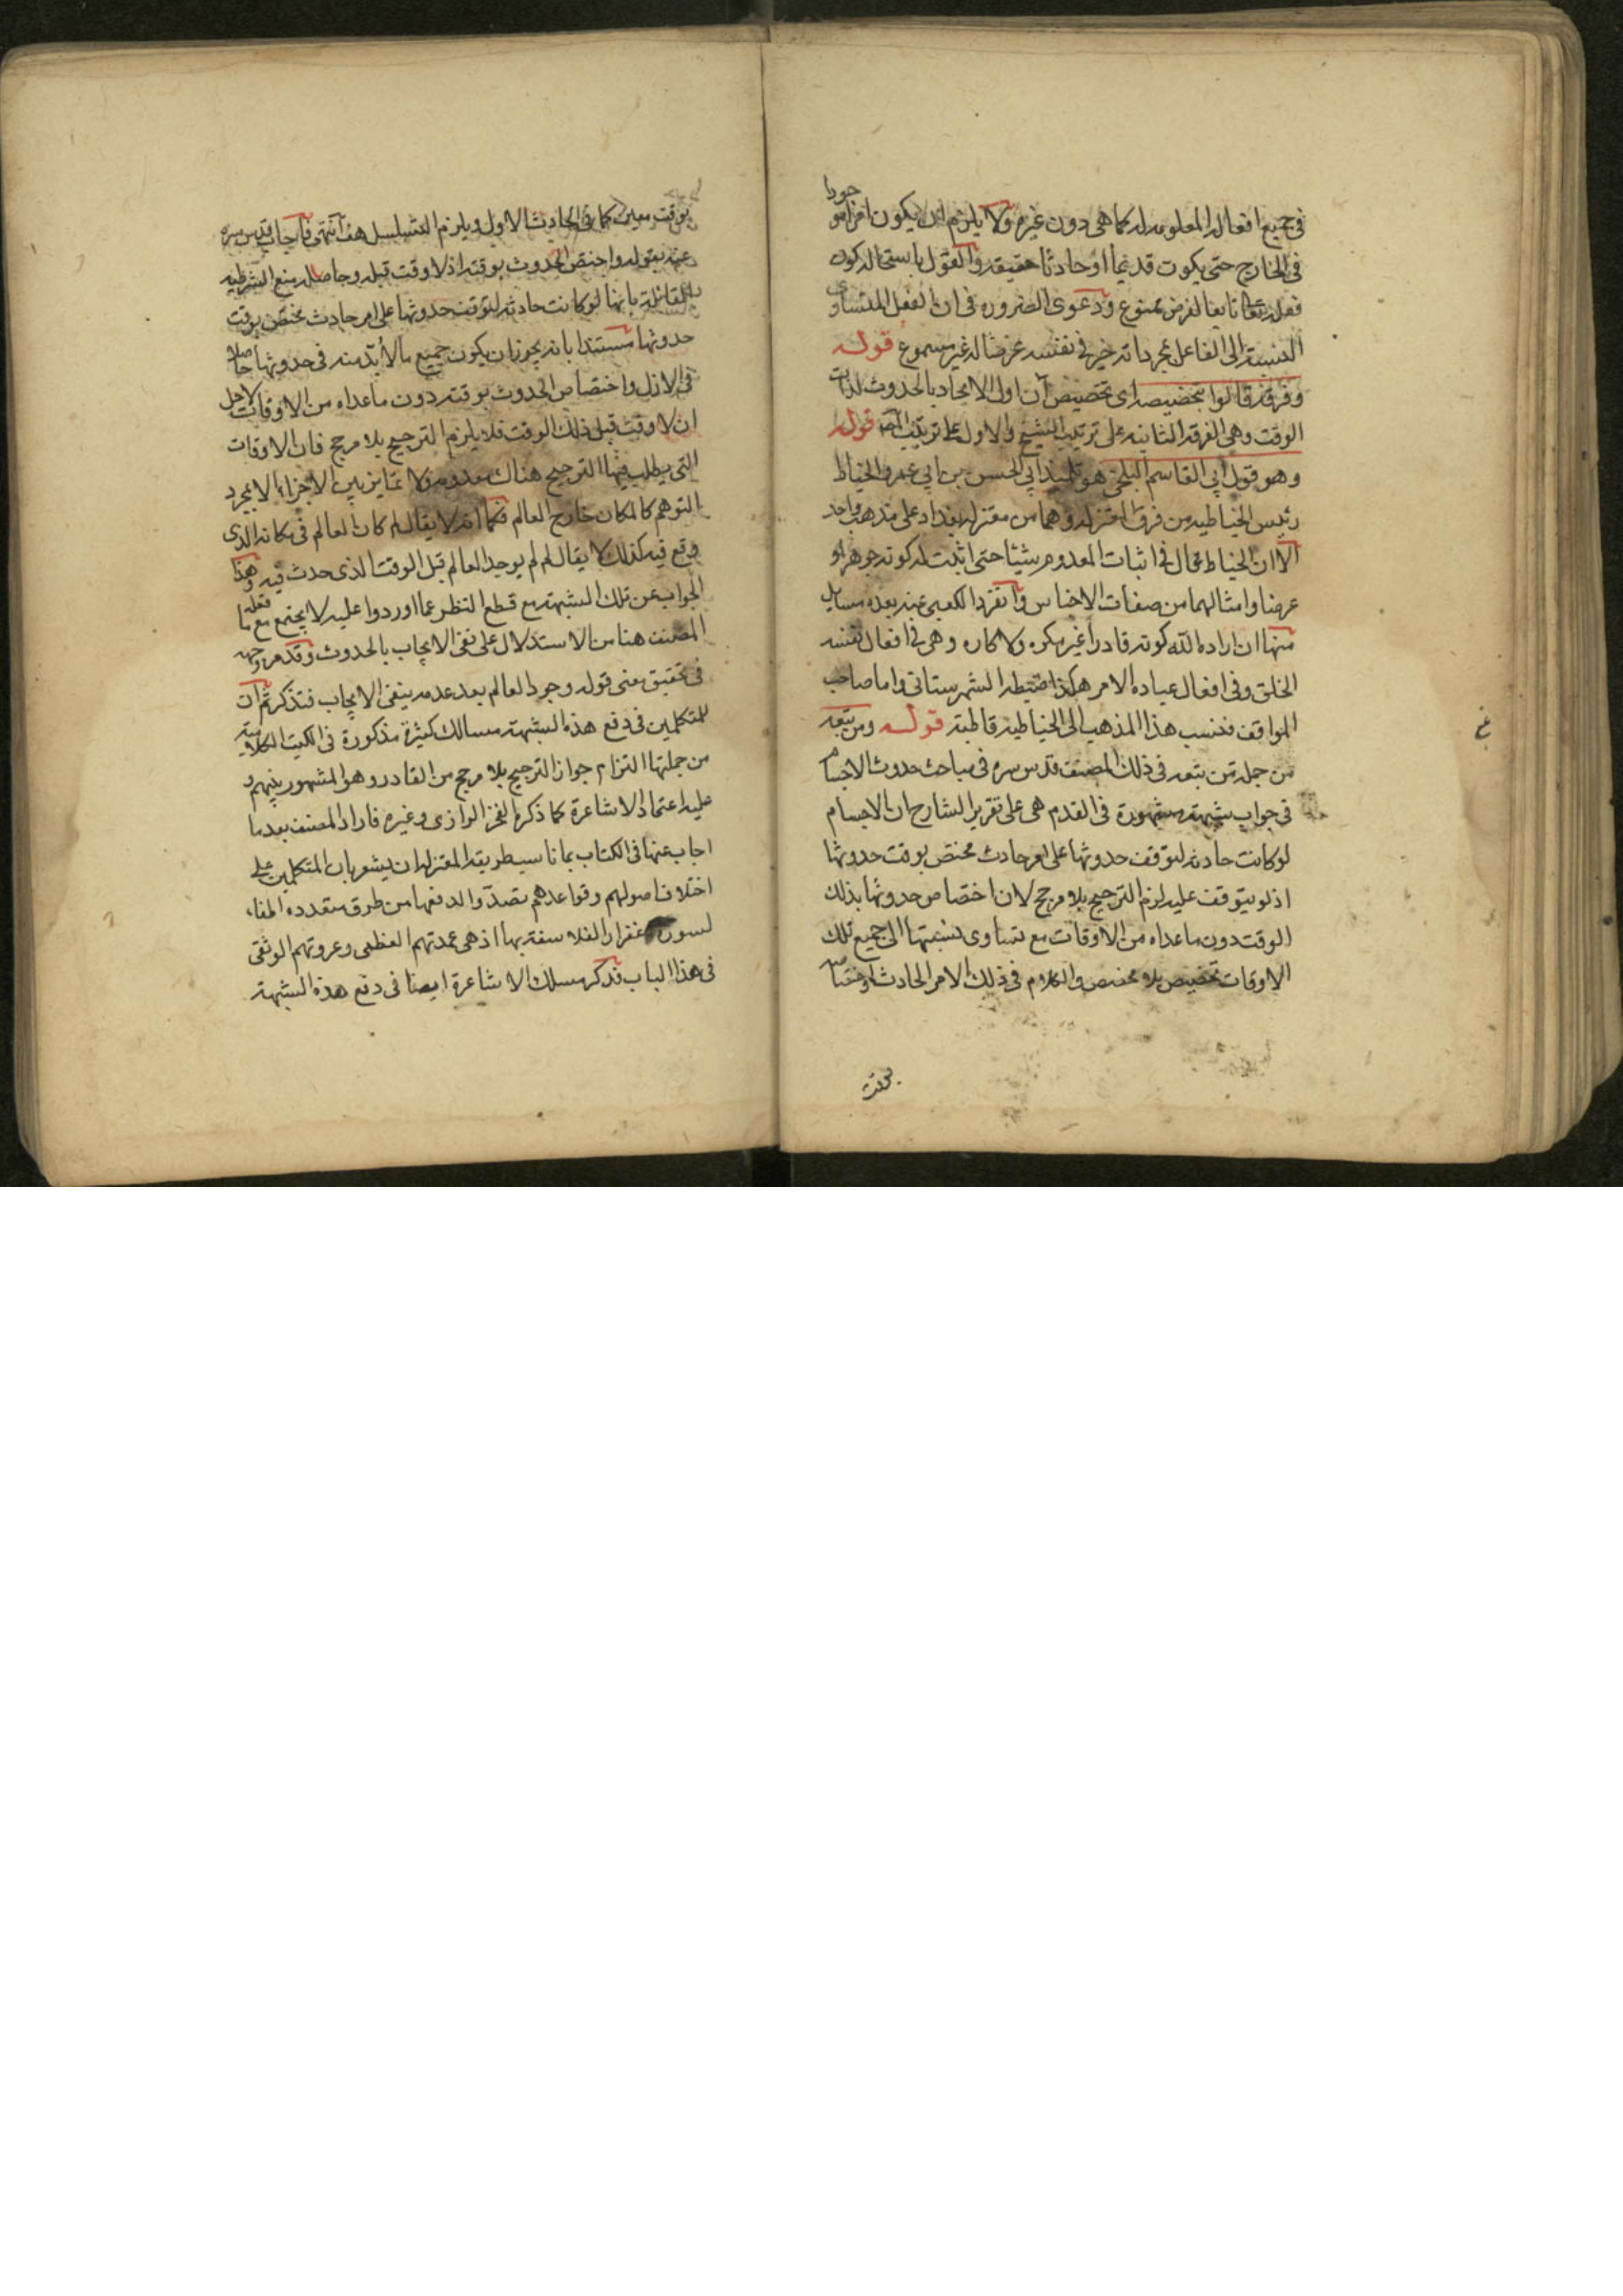 في جميع افعاله المعلومه له كما هي دون غيره ولا يلزم ان يكون امرا موجودا
في الخارج حتى يكون قديما او حادثا حقيقة والقول باستحاله كون
فعل تعا تابعا لغرض ممنوع ودعوى الضروره في ان الفعل المتساوى
النسبة الى الفاعل بمجرد انه خير في نفسه عرضا له غير مسموع قوله
وفرقة قالوا بتخصيصه اى تخصيص آن اول الايجاد بالحدوث لذات
الوقت وهى الفرقه الثانيه على ترتيب الشيخ والاول على ترتيب المص قوله
وهو قول ابي القاسم البلخى هو تلميذ ابي الحسن بن ابي عمرو الخياط
رئيس الخياطيه من فرق المعتزله وهما من معتزله بغداد على مذهب واحد
الا ان الخياط غال في اثبات المعدوم شيئا حتى اثبت له كونه جوهرا و
عرضا وامثالهما من صفات الاجناس وانفرد الكعبي عنه بعده مسايل
منها ان اراده الله كونه قادرا غير مكره ولا كاره وهى في افعال نفسه
الخلق وفى افعال عباده الامر هكذا ضبطه الشهرستانى واما صاحب
المواقف فنسب هذا المذهب الى الخياطيه قاطبة قوله ومن تبعه
من جمله من تبعه فى ذلك المصنف قدس سره فى مباحث حدوث الاجسام
فى جواب شبهة مشهورة فى القدم هى على تقرير الشارح ان الاجسام
لو كانت حادثه لتوقف حدوثها على امر حادث مختص بوقت حدوثها
اذ لو لم يتوقف عليه لزم الترجيح بلا مرجح لان اختصاص حدوثها بذلك
الوقت دون ماعداه من الاوقات مع تساوى نسبتها الى جميع تلك
الاوقات تخصيص بلا مخصص والكلام فى ذلك الامر الحادث واختصاصه
بوقت
بوقت معين كما فى الحادث الاول ويلزم التسلسل هف انتهى فاجاب قدس سره
عنه بقوله واختص الحدوث بوقته اذ لا وقت قبله وحاصله منع الشرطيه
القائلة بانها لو كانت حادثه لتوقف حدوثها على امر حادث مختص بوقت
حدوثها مستندا بانه يجوز ان يكون جميع ما لا بد منه فى حدوثها حاصلا
فى الازل واختصاص الحدوث بوقته دون ماعداه من الاوقات لاجل
ان لا وقت قبل ذلك الوقت فلا يلزم الترجيح بلا مرجح فان الاوقات
التى يطلب فيها الترجيح هناك معدومة ولا تمايز بين الاجزاء الا بمجرد
التوهم كالمكان خارج العالم فكما انه لا يقال لم كان العالم فى مكانه الذى
وقع فيه كذلك لا يقال لم لم يوجد العالم قبل الوقت الذى حدث فيه وهذا
الجواب عن تلك الشبهة مع قطع النظر عما اوردوا عليه لا يجتمع مع ما فعله
المصنف هنا من الاستدلال على نفى الايجاب بالحدوث وقد مر وجهه
فى تحقيق معنى قوله وجود العالم بعد عدمه ينفى الايجاب فتذكر ثم ان
للمتكلمين فى دفع هذه الشبهة مسالك كثيرة مذكورة فى الكتب الكلامية
من جملتها التزام جواز الترجيح بلا مرجح من القادر وهو المشهور بينهم و
عليه اعتماد الاشاعرة كما ذكره الفخر الرازى وغيره فاراد المصنف بعد ما
اجاب عنها فى الكتاب بما ناسب طريقة المعتزله ان يشعر بان المتكلمين على
اختلاف اصولهم وقواعدهم تصدوا لدفعها من طرق متعدده
لسورة اغترار الفلاسفة بها اذ هى عمدتهم العظمى وعروتهم الوثقى
فى هذا الباب فذكر مسلك الاشاعرة ايضا فى دفع هذه الشبهة